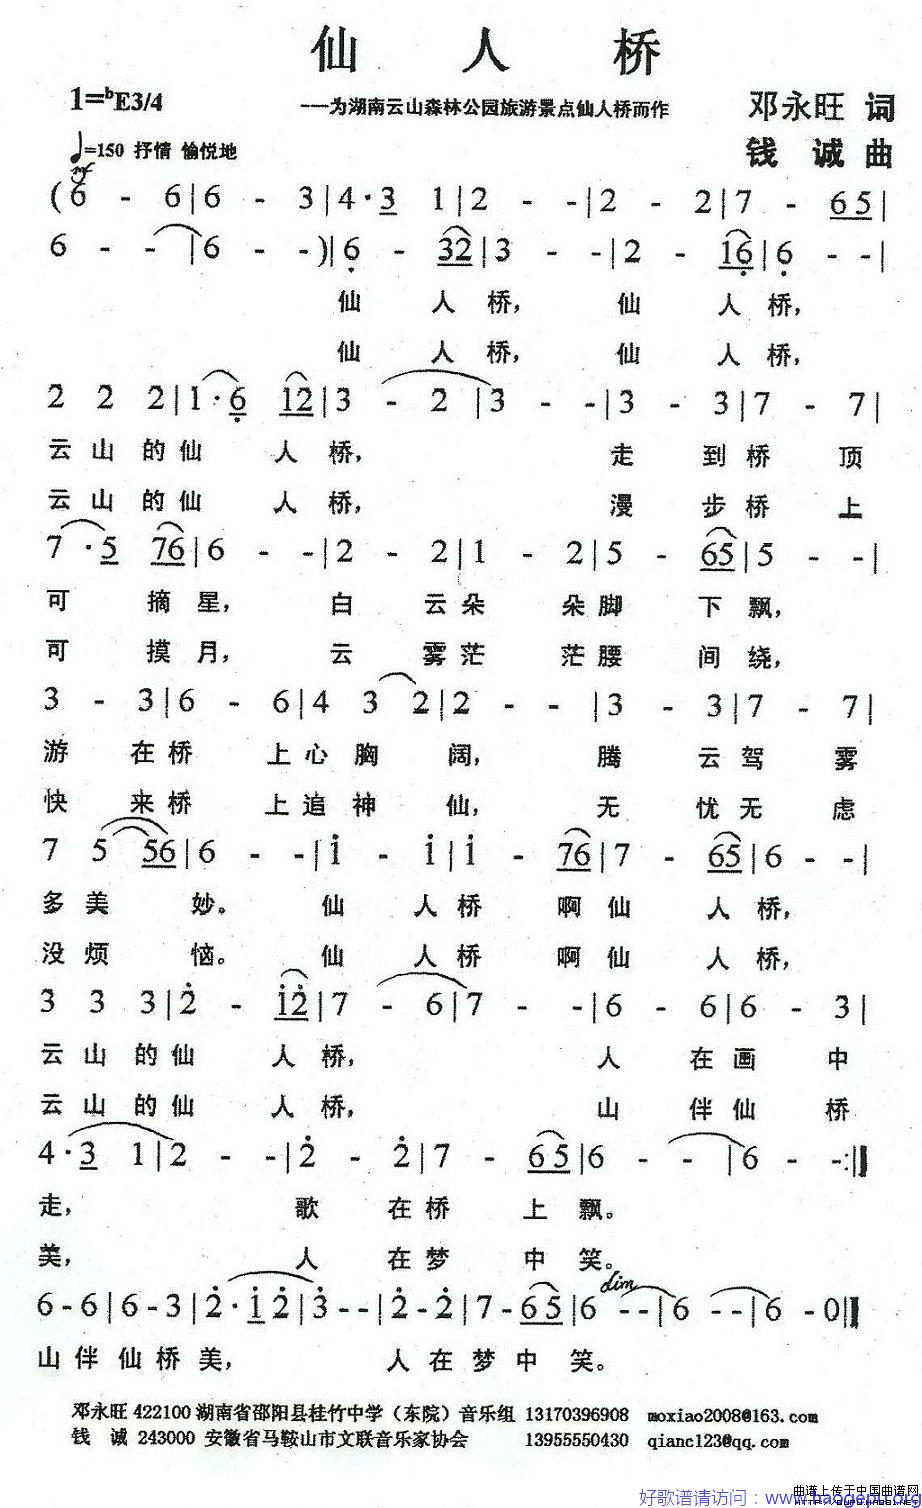 仙 人 桥
1=ᵇE3/4
——为湖南云山森林公园旅游景点仙人桥而作
邓永旺 词
♩=150 抒情 愉悦地
钱 诚 曲
mf
(6 - 6|6 - 3|4·3 1|2 - -|2 - 2|7 - 65|
6 - -|6 - -)|6 - 32|3 - -|2 - 16|6 - -|
仙 人 桥, 仙 人 桥,
仙 人 桥, 仙 人 桥,
2 2 2|1·6 12|3 - 2|3 - -|3 - 3|7 - 7|
云 山 的 仙 人 桥, 走 到 桥 顶
云 山 的 仙 人 桥, 漫 步 桥 上
7·5 76|6 - -|2 - 2|1 - 2|5 - 65|5 - -|
可 摘 星, 白 云 朵 朵 脚 下 飘,
可 摸 月, 云 雾 茫 茫 腰 间 绕,
3 - 3|6 - 6|4 3 2|2 - -|3 - 3|7 - 7|
游 在 桥 上 心 胸 阔, 腾 云 驾 雾
快 来 桥 上 追 神 仙, 无 忧 无 虑
7 5 56|6 - -|i - i|i - 76|7 - 65|6 - -|
多 美 妙。 仙 人 桥 啊 仙 人 桥,
没 烦 恼。 仙 人 桥 啊 仙 人 桥,
3 3 3|2̇ - i2̇|7 - 6|7 - -|6 - 6|6 - 3|
云 山 的 仙 人 桥, 人 在 画 中
云 山 的 仙 人 桥, 山 伴 仙 桥
4·3 1|2 - -|2̇ - 2̇|7 - 65|6 - -|6 - -:‖
走, 歌 在 桥 上 飘。
美, 人 在 梦 中 笑。
dim
6 - 6|6 - 3|2̇·i 2̇|3̇ - -|2̇ - 2̇|7 - 65|6 - -|6 - -|6 - 0‖
山 伴 仙 桥 美, 人 在 梦 中 笑。
邓永旺 422100 湖南省邵阳县桂竹中学（东院）音乐组 13170396908 moxiao2008@163.com
钱 诚 243000 安徽省马鞍山市文联音乐家协会 13955550430 qianc123@qq.com
曲谱上传于中国曲谱网
好歌谱请访问：www.haogepu.org